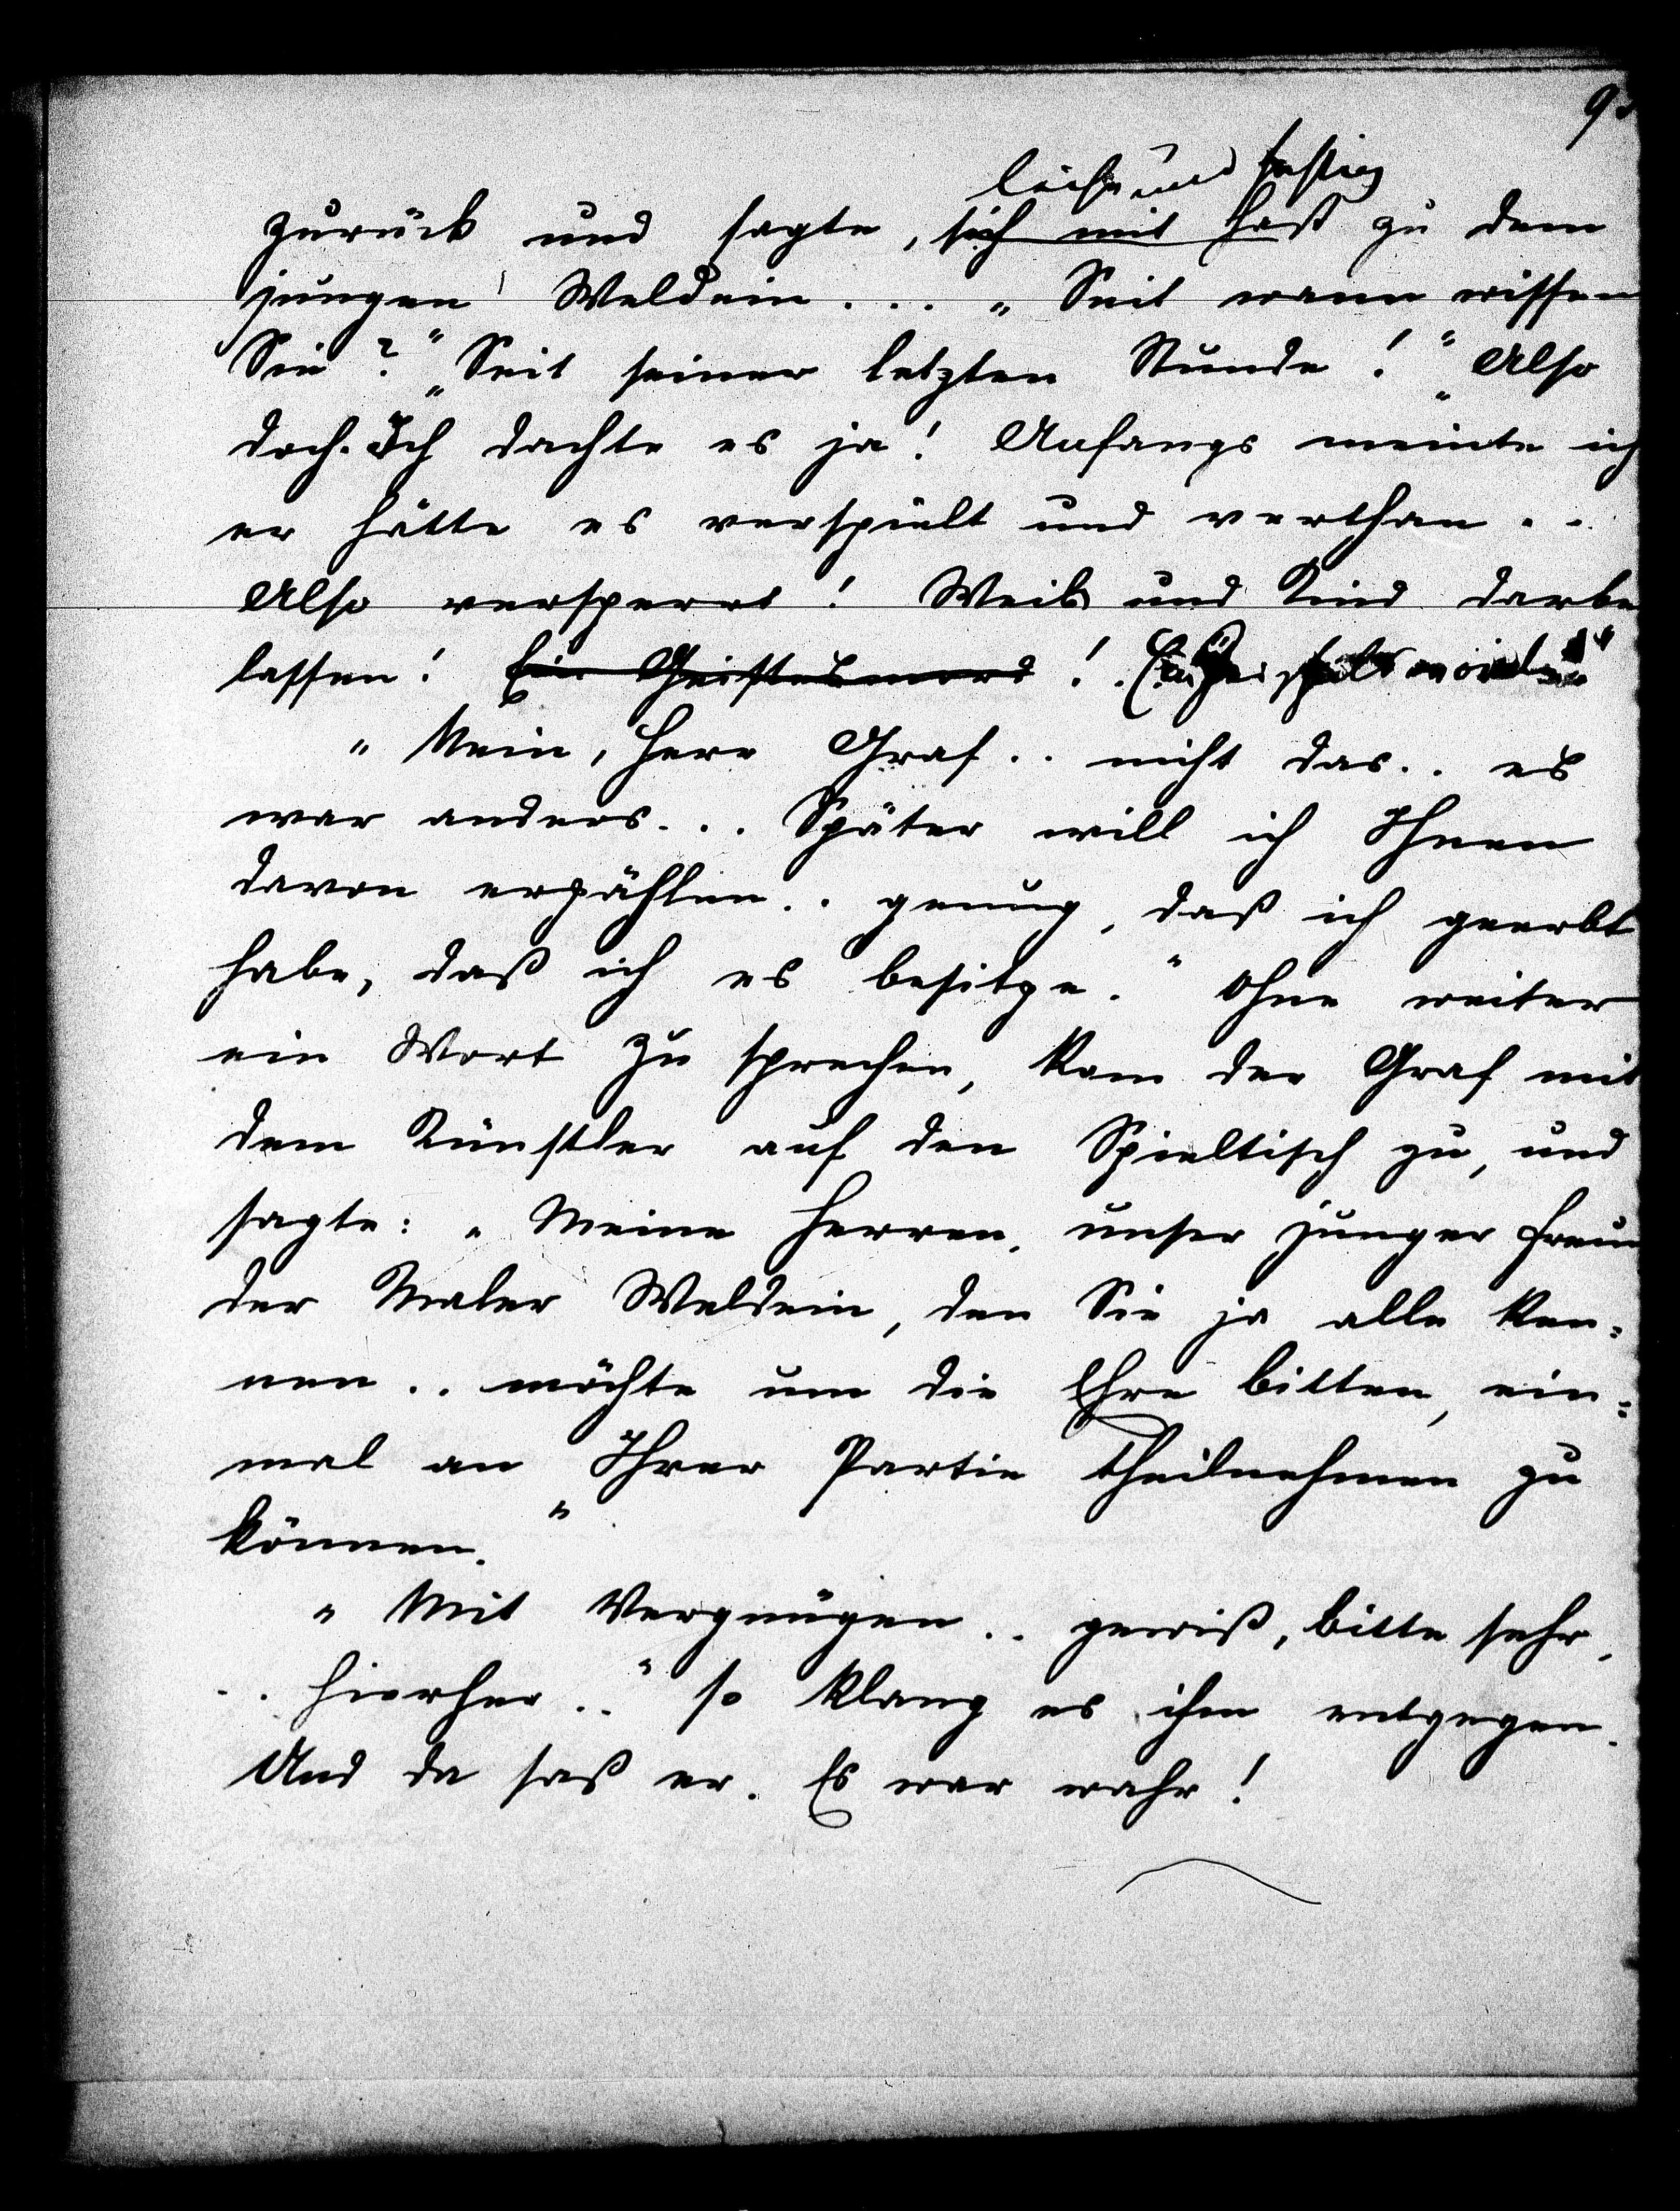 leise und hastig
zurück und sagte, sich mit Hast zu dem
jungen Weldein... „Seit wann wissen
Sie?" „Seit seiner letzten Stunde!" „Also
doch. Ich dachte es ja! Anfangs meinte ich
er hätte es verspielt und verthan..
Also versperrt! Weib und Kind darbe
lassen! Ein Geistesmord!
„Nein, Herr Graf.. nicht das.. es
war anders... Später will ich Ihnen
davon erzählen.. genug, daß ich geerbt
habe, daß ich es besitze." Ohne weiter
ein Wort zu sprechen, kam der Graf mit
dem Künstler auf den Spieltisch zu, und
sagte: „Meine Herren, unser junger Freun
der Maler Weldein, den Sie ja alle ken=
nen.. möchte um die Ehre bitten, ein=
mal an Ihrer Partie theilnehmen zu
können."
„Mit Vergnügen.. gewiß, bitte sehr,
.. hierher.." so klang es ihm entgegen.
Und da saß er. Es war wahr!